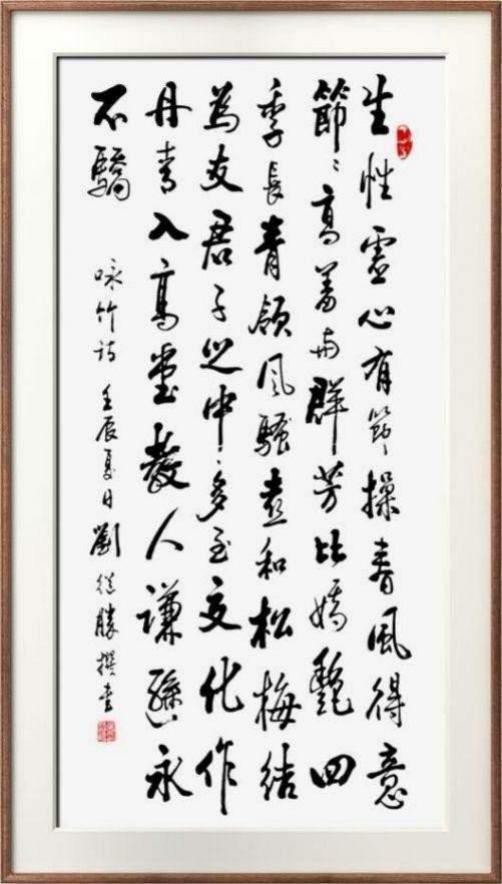 生性虛心有節操春風得意
節節高羞与群芳比嬌艷四
季長青領風騷意和松梅結
為友君子之中中多至交化作
丹青入高堂教人謙遜永
不驕
咏竹诗 壬辰夏日 劉從勝撰書